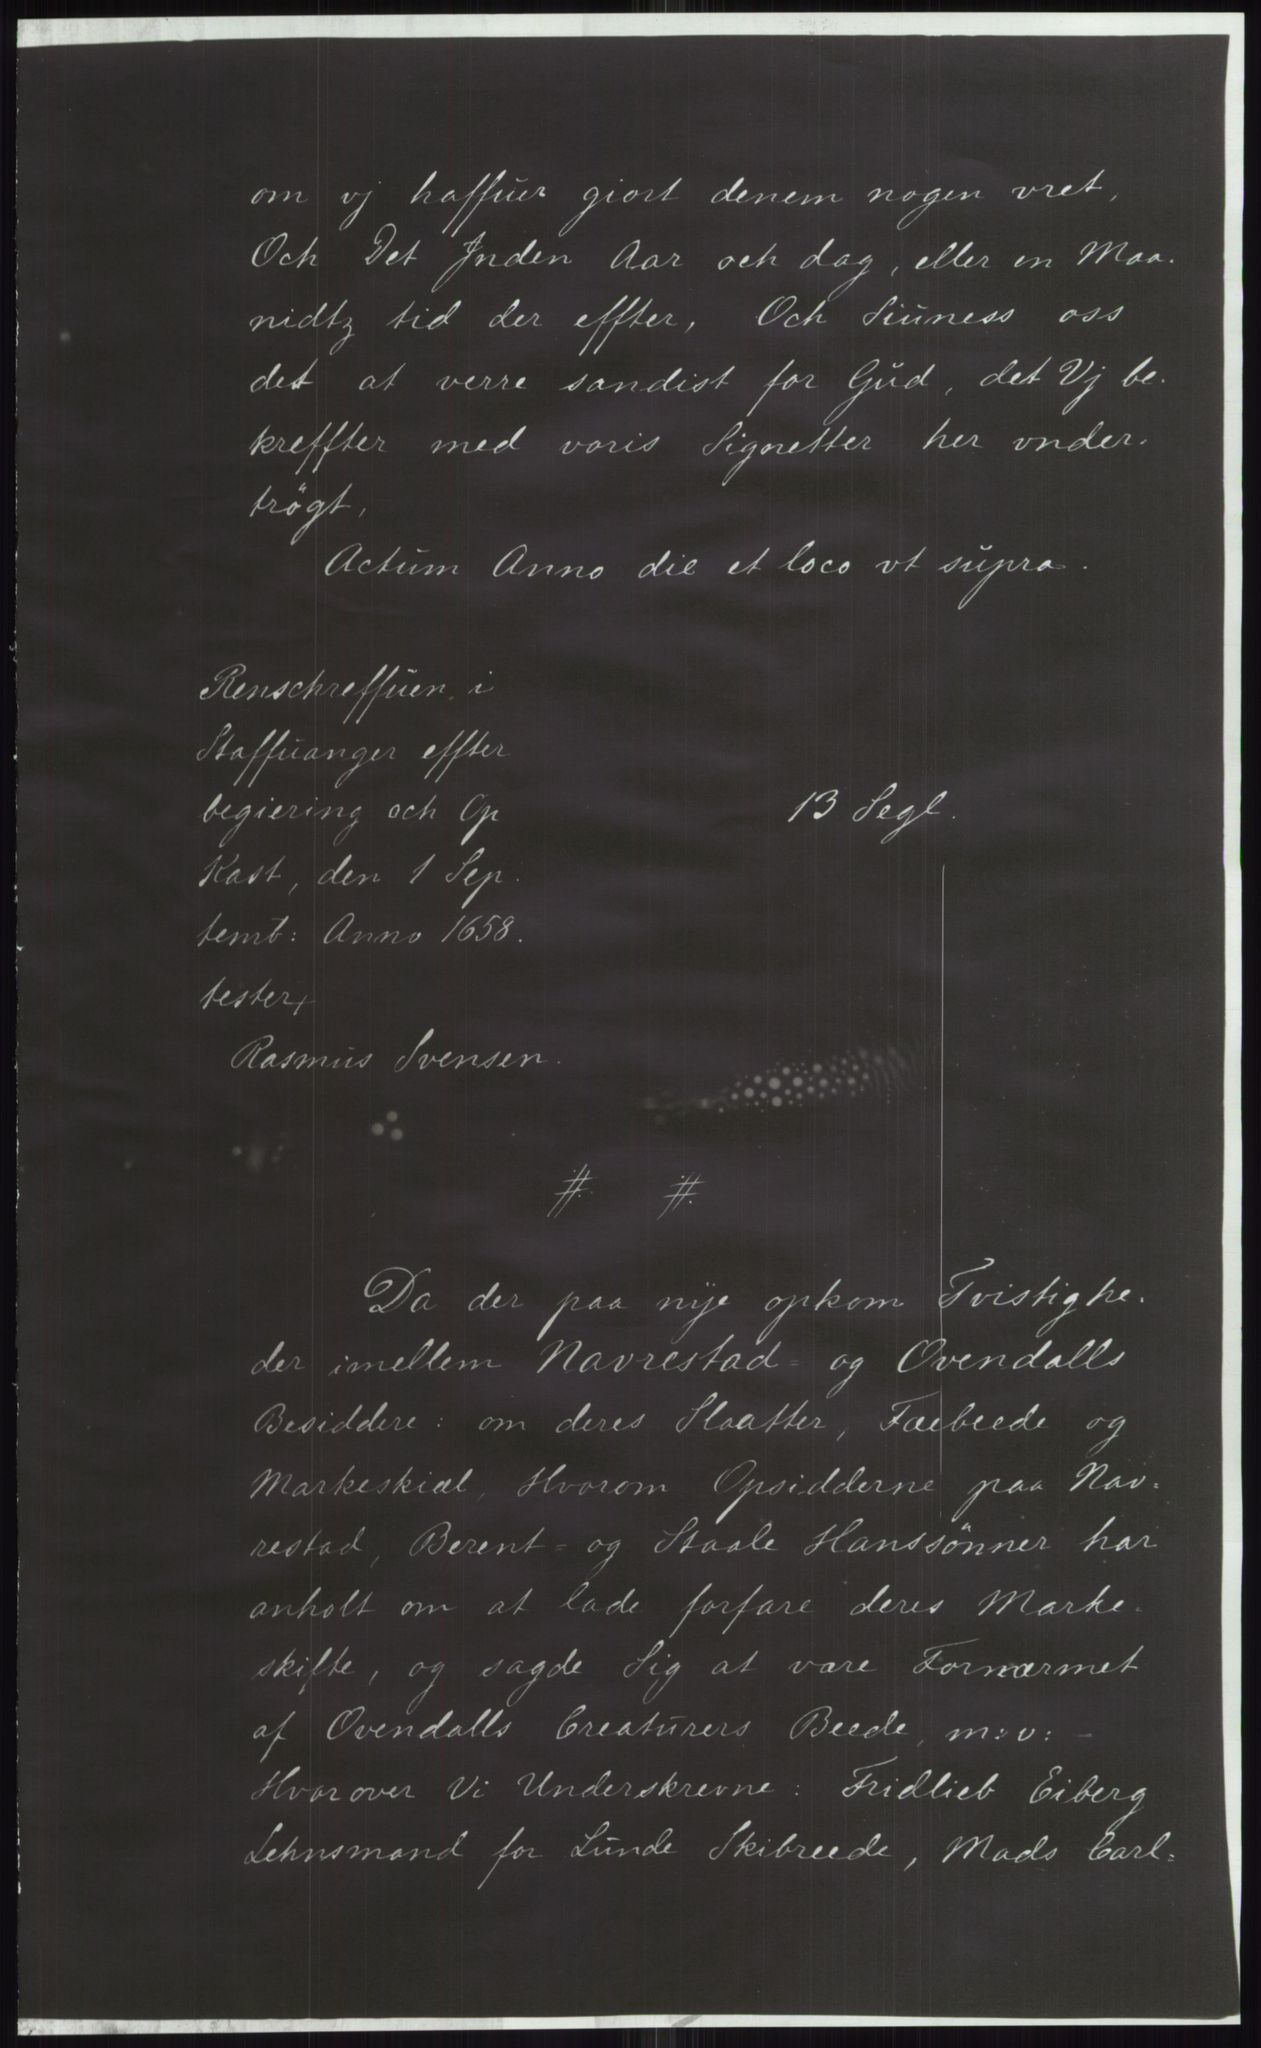 om vj haffuer giort denem nogen vret,
Och Det Jnden Aar och dag, eller en Maa-
nidtz tid der effter, Och Siuness oss
det at verre sandist for Gud, det Vj be-
kreffter med voris Signetter her vnder-
trögt,
Actum Anno die et loco vt supra.
Renschreffuen i
Staffuanger effter
begiering och Op
Kast, den 1 Sep.
temb: Anno 1658.
tester
Rasmus Svensen.
13 Segl.
# #
Da der paa nye opkom Tvistighe-
der imellem Navrestad= og Ovendalls
Besiddere: om deres Slaatter, Fæebeede og
Markeskiæl, Hvorom Opsidderne paa Nav=
restad, Berent= og Staale Hanssönner har
anholt om at lade forfare deres Marke-
skifte, og sagde Sig at være Fornærmet
af Ovendalls Creaturers Beede, m:v: -
Hvorover Vi Underskrevne: Fridlieb Eiberg
Lehnsmand for Lunde Skibreede, Mads Carl=